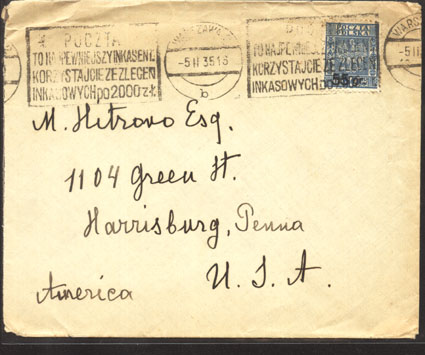 POCZTA
TO NAJPEWNIEJSZY INKASENT.
KORZYSTAJCIE ZE ZLECEŃ
INKASOWYCH po 2000 zł.
WARSZAWA
-5 II 35 18
b
TO NAJPEWNIEJSZY
KORZYSTAJCIE ZE ZLECEŃ
INKASOWYCH po
POCZTA
POLSKA
55 gr.
WARSZ
-5 II
M. Hitrovo Esq.
1104 Green St.
Harrisburg, Penna
U. S. A.
America